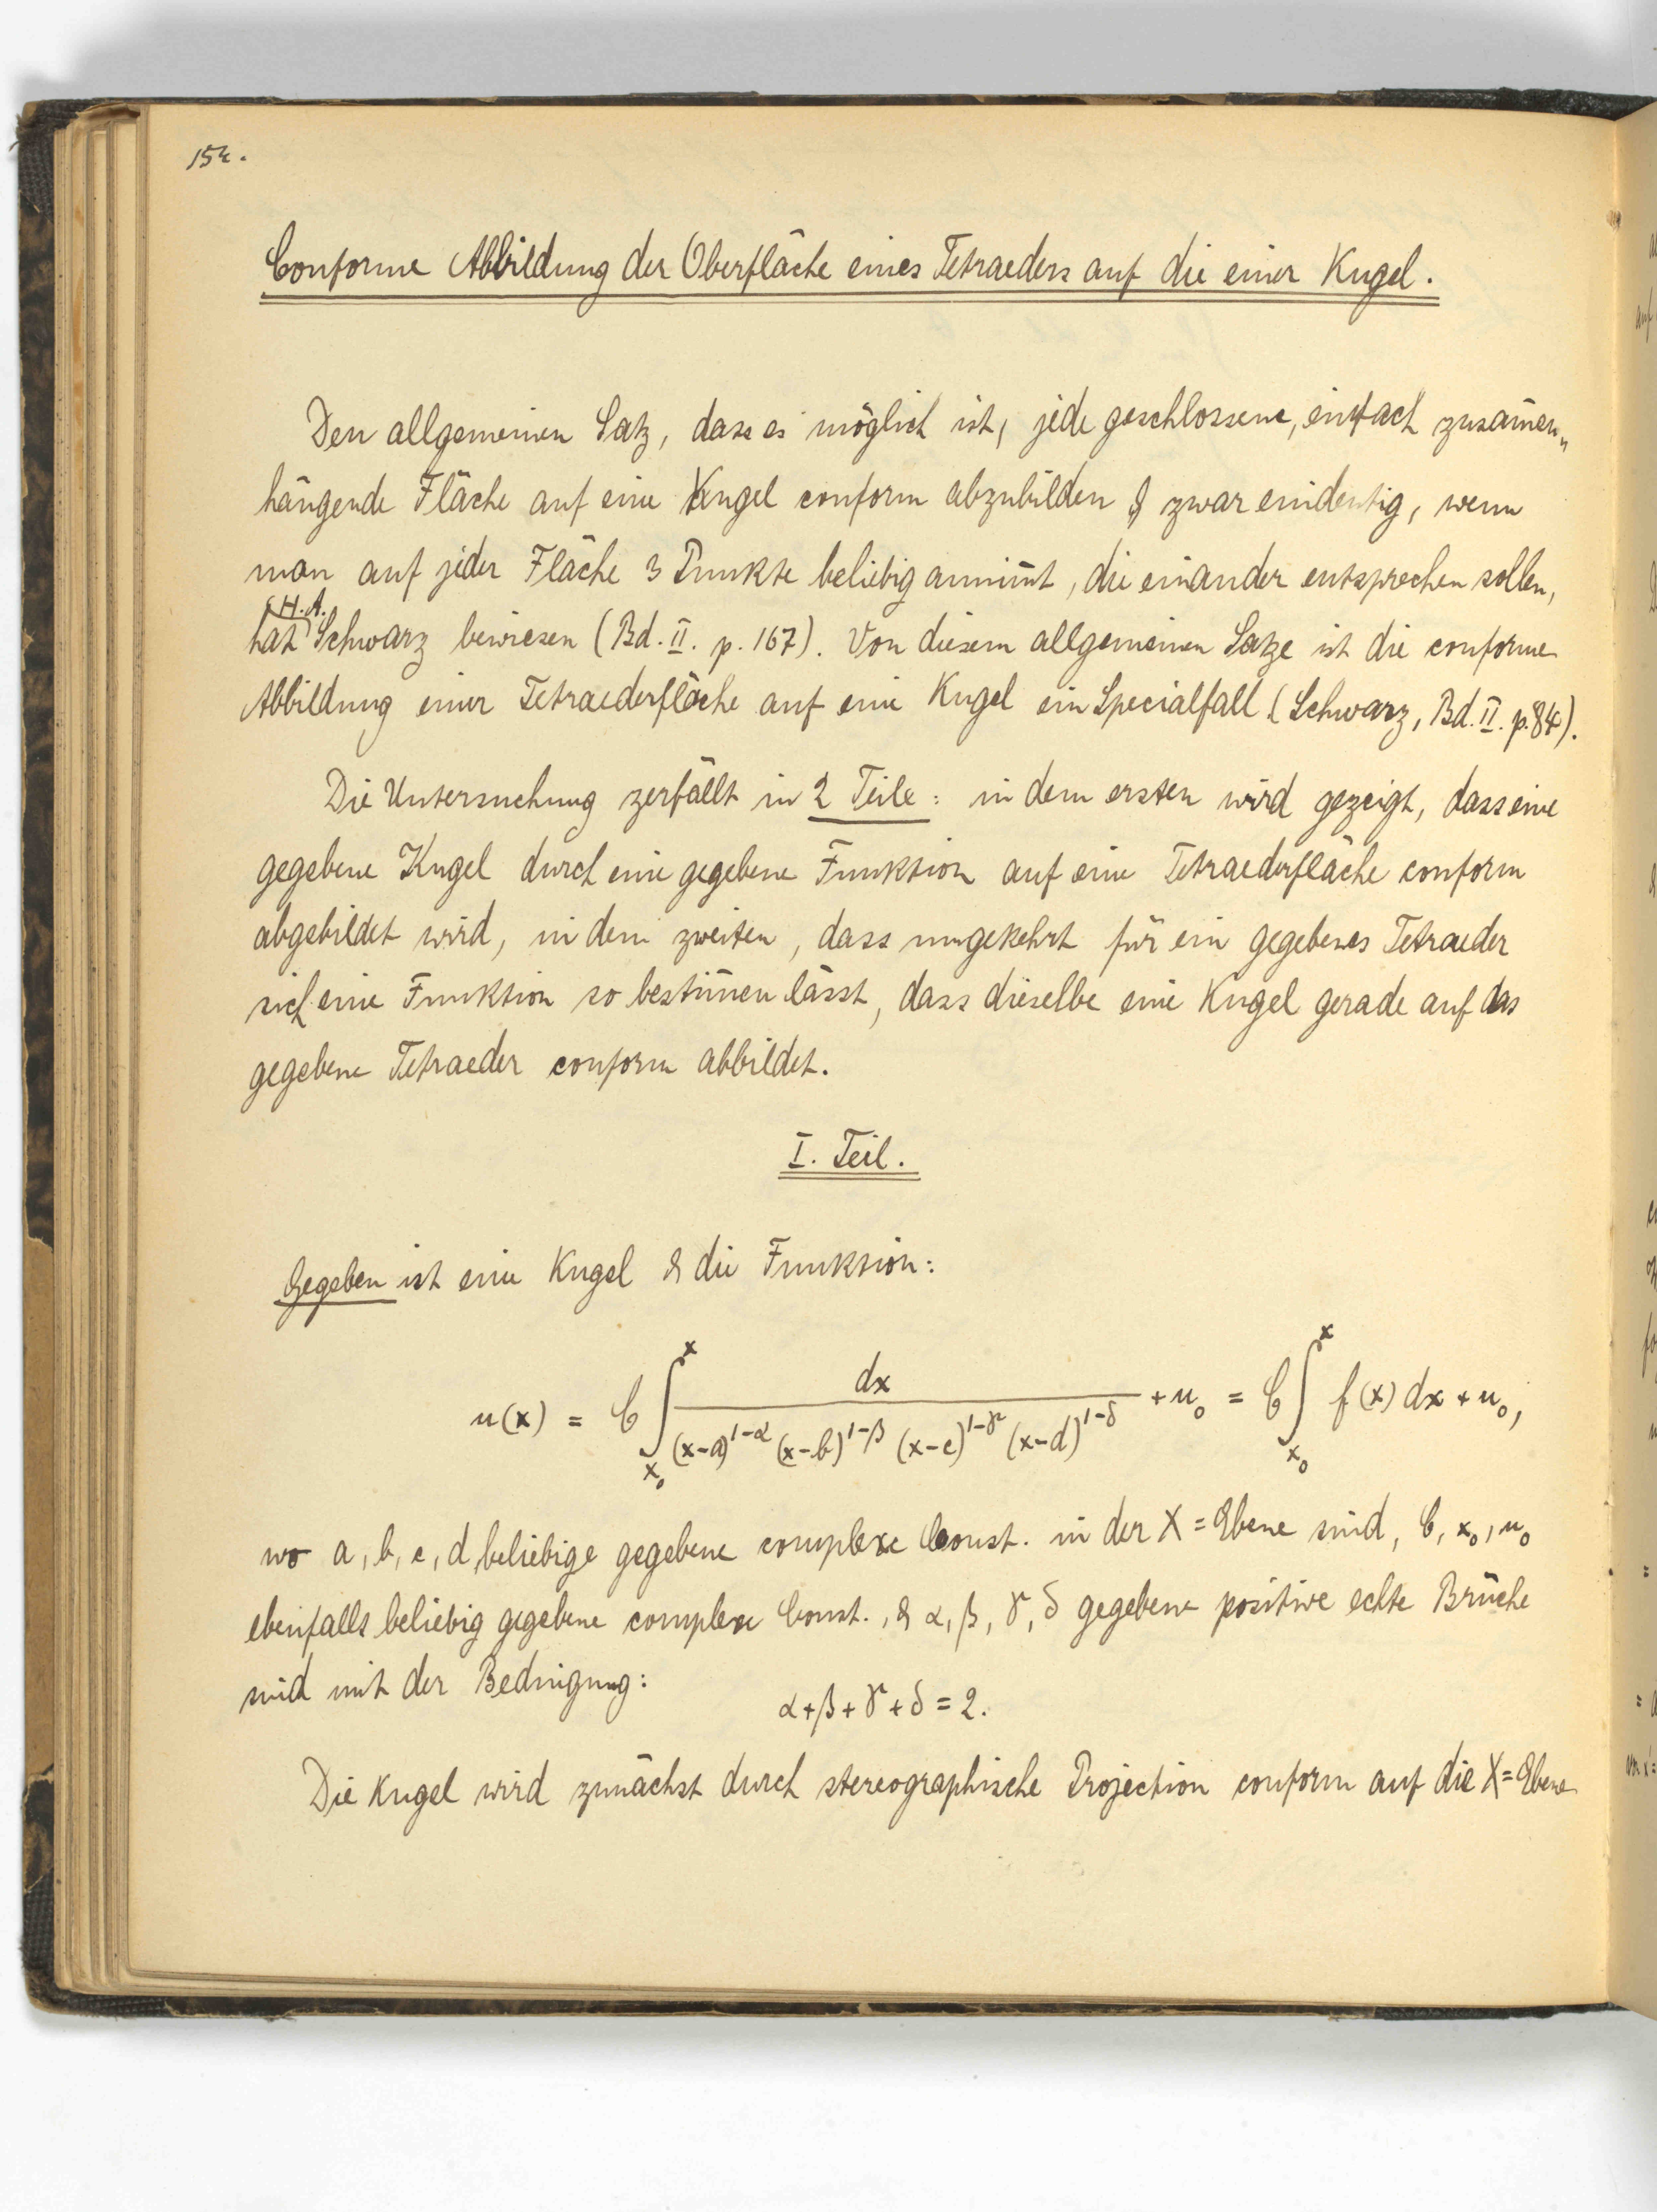 154.
Conforme Abbildung der Oberfläche eines Tetraeders auf die einer Kugel.
Den allgemeinen Satz, dass es möglich ist, jede geschlossene, einfach zusam̅en„
hängende Fläche auf eine Kugel conform abzubilden & zwar eindeutig, wenn
man auf jeder Fläche 3 Punkte beliebig annim̅t, die einander entsprechen sollen,
hat H. A. Schwarz bewiesen (Bd. II. p. 167). Von diesem allgemeinen Satze ist die conforme
Abbildung einer Tetraederfläche auf eine Kugel ein Specialfall (Schwarz, Bd. II. p. 84).
Die Untersuchung zerfällt in 2 Teile: in dem ersten wird gezeigt, dass eine
gegebene Kugel durch eine gegebene Funktion auf eine Tetraederfläche conform
abgebildet wird, in dem zweiten, dass umgekehrt für ein gegebenes Tetraeder
sich eine Funktion so bestim̅en lässt, dass dieselbe eine Kugel gerade auf das
gegebene Tetraeder conform abbildet.
I. Teil.
Gegeben ist eine Kugel & die Funktion:
u(x) = C ∫_{x₀}^{x} dx / ((x-a)^{1-α} (x-b)^{1-β} (x-c)^{1-γ} (x-d)^{1-δ}) + u₀ = C ∫_{x₀}^{x} f(x) dx + u₀,
wo a, b, c, d, beliebige gegebene complexe Const. in der X=Ebene sind, C, x₀, u₀
ebenfalls beliebig gegebene complexe Const., & α, β, γ, δ gegebene positive echte Brüche
sind mit der Bedingung:
α+β+γ+δ = 2.
Die Kugel wird zunächst durch stereographische Projection conform auf die X=Ebene